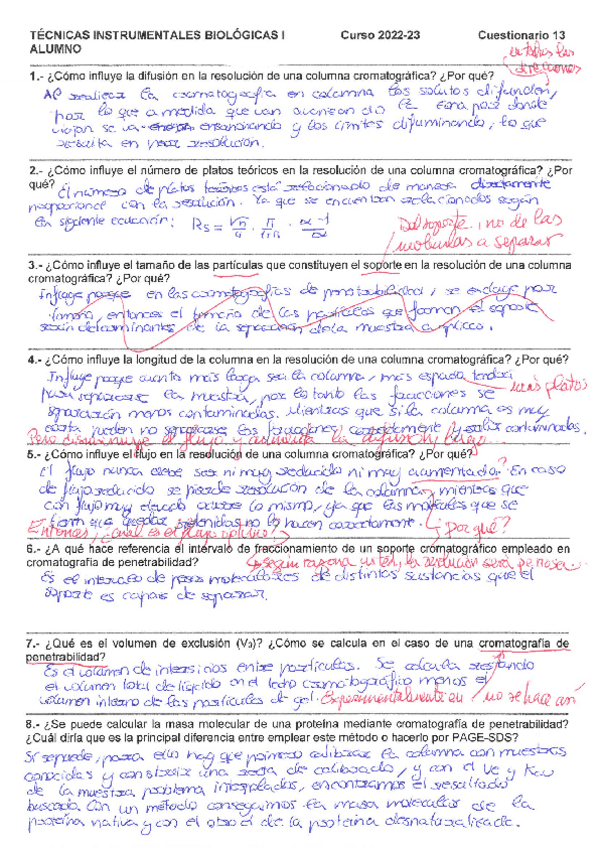 TÉCNICAS INSTRUMENTALES BIOLÓGICAS I Curso 2022-23 Cuestionario 13
ALUMNO
en todas las
direcciones
1.- ¿Cómo influye la difusión en la resolución de una columna cromatográfica? ¿Por qué?
Al realizar la cromatografía en columna los solutos difunden,
por lo que a medida que van avanzando la zona por donde
viajan se va ensanchando y los límites difuminando, lo que
resulta en peor resolución.
2.- ¿Cómo influye el número de platos teóricos en la resolución de una columna cromatográfica? ¿Por
qué? El número de platos teóricos está relacionado de manera directamente
proporcional con la resolución. Ya que se encuentran relacionados según
la siguiente ecuación: Rs =
Del soporte, no de las
moléculas a separar
3.- ¿Cómo influye el tamaño de las partículas que constituyen el soporte en la resolución de una columna
cromatográfica? ¿Por qué?
Influye porque en las cromatografías de penetrabilidad, se excluye por
tamaño, entonces el tamaño de las partículas que forman el soporte
serán determinantes de la separación de la muestra a aplicar.
4.- ¿Cómo influye la longitud de la columna en la resolución de una columna cromatográfica? ¿Por qué?
Influye porque cuanto más larga sea la columna, más espacio tendrá
más platos
para separarse la muestra, por lo tanto las fracciones se
separarán menos contaminadas. Mientras que si la columna es muy
corta pueden no separarse las fracciones correctamente y salir contaminadas.
Pero disminuye el flujo y aumenta la difusión, luego...
5.- ¿Cómo influye el flujo en la resolución de una columna cromatográfica? ¿Por qué?
El flujo nunca debe ser ni muy reducido ni muy aumentado. En caso
de flujo reducido se pierde resolución de la columna, mientras que
con flujo muy elevado ocurre lo mismo, ya que las moléculas que se
tienen que quedar retenidas no lo hacen correctamente. ¿Por qué?
Entonces, ¿cuál es el flujo óptimo?
6.- ¿A qué hace referencia el intervalo de fraccionamiento de un soporte cromatográfico empleado en
cromatografía de penetrabilidad? Según razona usted, la resolución será penosa.
Es el intervalo de pesos moleculares de distintas sustancias que el
soporte es capaz de separar.
7.- ¿Qué es el volumen de exclusión (V₀)? ¿Cómo se calcula en el caso de una cromatografía de
penetrabilidad?
Es el volumen de intersticios entre partículas. Se calcula restando
el volumen total de líquido en el lecho cromatográfico menos el
volumen interno de las partículas de gel. Experimentalmente no se hace así
8.- ¿Se puede calcular la masa molecular de una proteína mediante cromatografía de penetrabilidad?
¿Cuál diría que es la principal diferencia entre emplear este método o hacerlo por PAGE-SDS?
Si se puede, para ello hay que primero calibrar la columna con muestras
conocidas y construir una recta de calibrado, y con el Ve y Kav
de la muestra problema interpolados, encontramos el resultado
buscado. Con un método conseguimos la masa molecular de la
proteína nativa y con el otro el de la proteína desnaturalizada.